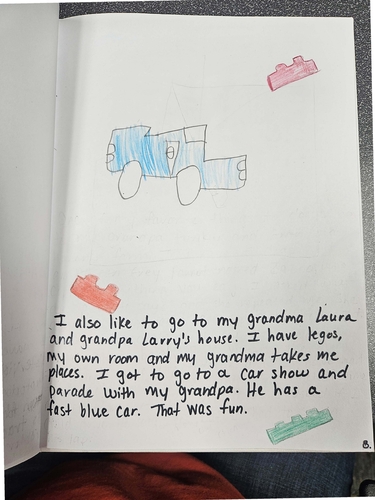 I also like to go to my grandma Laura
and grandpa Larry's house. I have legos,
my own room and my grandma takes me
places. I got to go to a car show and
parade with my grandpa. He has a
fast blue car. That was fun.
8.